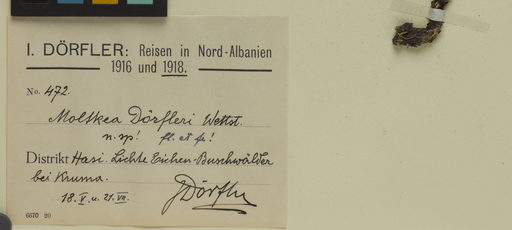 I. DÖRFLER: Reisen in Nord-Albanien
1916 und 1918.
No. 472.
Moltkea Dörfleri Wettst.
n. sp! fl. et fr!
Distrikt Hasi. Lichte Eichen-Buschwälder
bei Kruma.
18. V. u. 21. VII.
JDörfler
6670 20